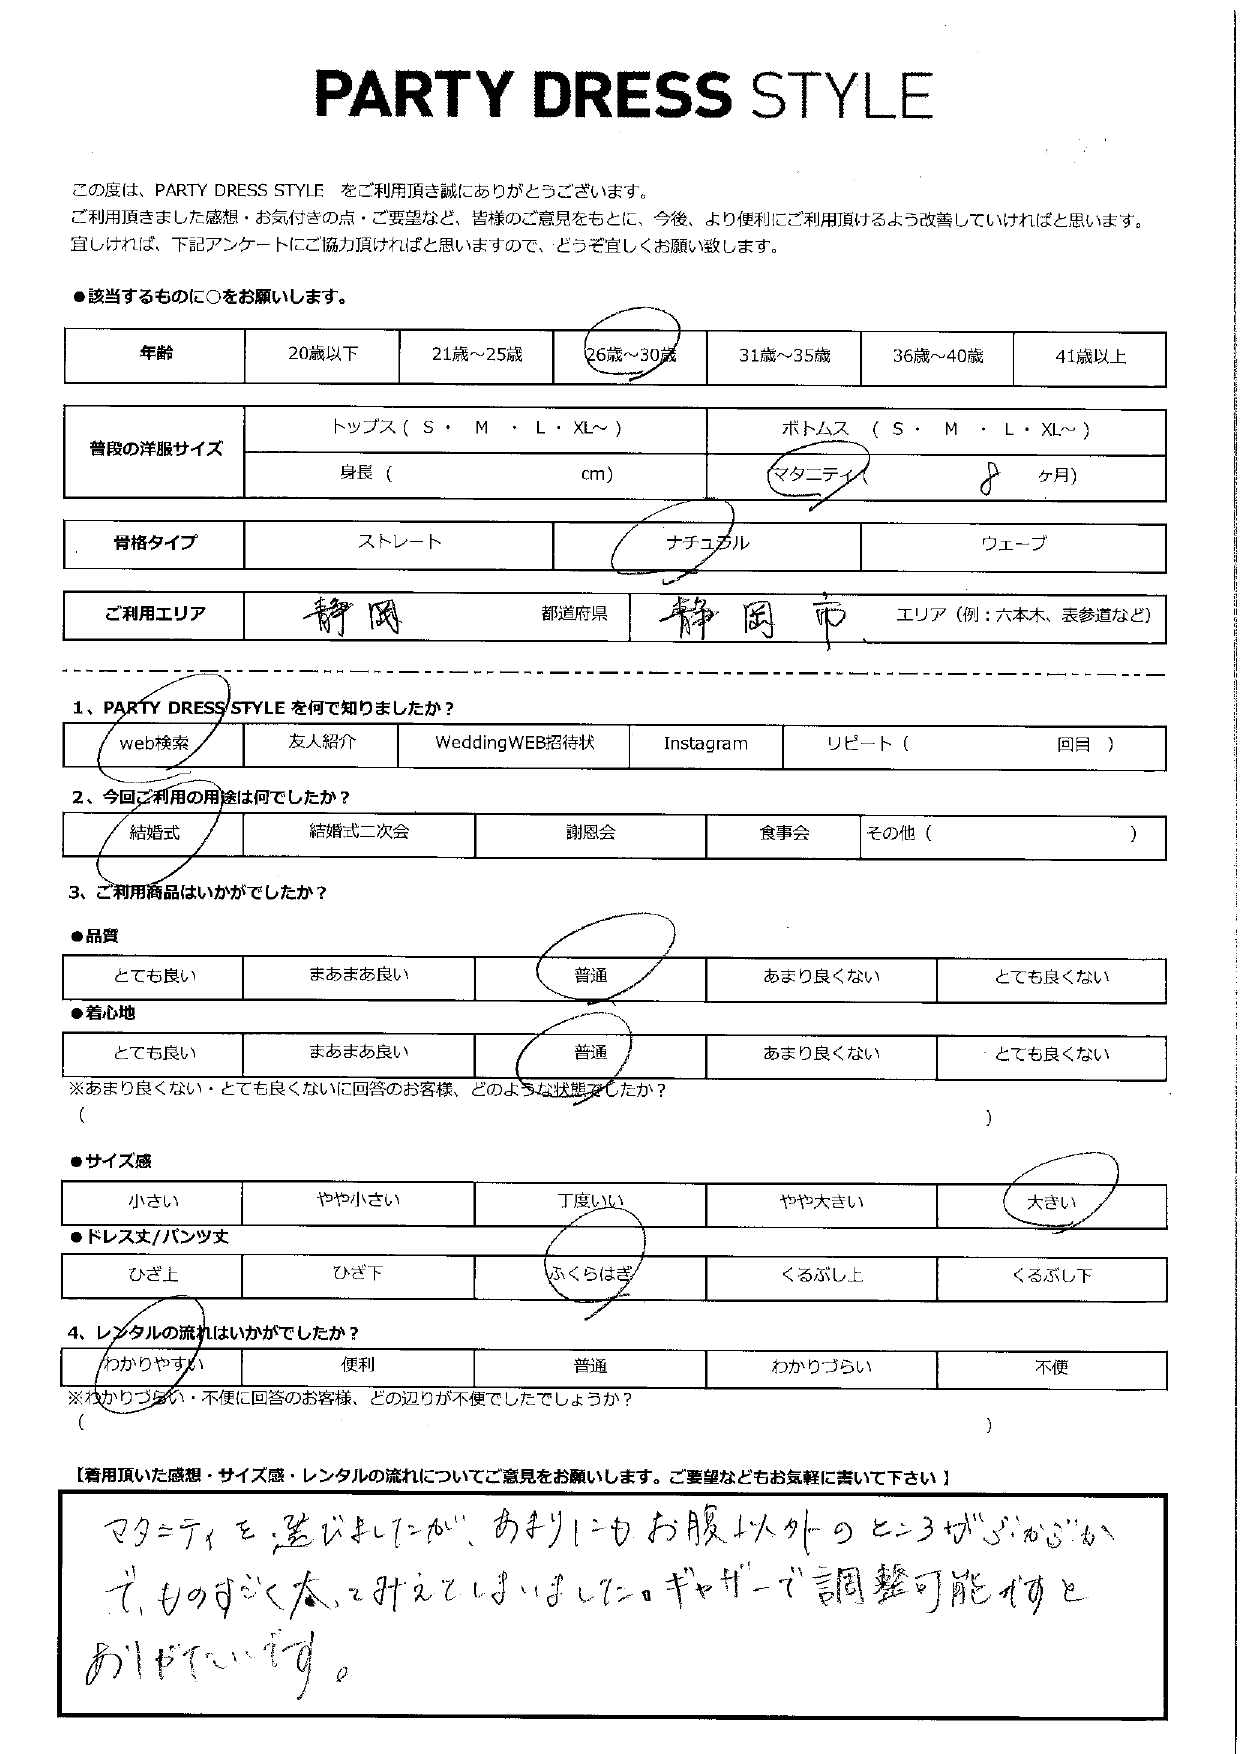 PARTY DRESS STYLE
この度は、PARTY DRESS STYLE をご利用頂き誠にありがとうございます。
ご利用頂きました感想・お気付きの点・ご要望など、皆様のご意見をもとに、今後、より便利にご利用頂けるよう改善していければと思います。
宜しければ、下記アンケートにご協力頂ければと思いますので、どうぞ宜しくお願い致します。
●該当するものに○をお願いします。
年齢 20歳以下 21歳～25歳 26歳～30歳 31歳～35歳 36歳～40歳 41歳以上
普段の洋服サイズ トップス ( S ・ M ・ L ・ XL～ ) ボトムス ( S ・ M ・ L ・ XL～ )
身長 ( cm) マタニティ( 8 ヶ月)
骨格タイプ ストレート ナチュラル ウェーブ
ご利用エリア 静岡 都道府県 静岡市 エリア（例：六本木、表参道など）
1、PARTY DRESS STYLE を何で知りましたか？
web検索 友人紹介 WeddingWEB招待状 Instagram リピート ( 回目 )
2、今回ご利用の用途は何でしたか？
結婚式 結婚式二次会 謝恩会 食事会 その他 ( )
3、ご利用商品はいかがでしたか？
●品質
とても良い まあまあ良い 普通 あまり良くない とても良くない
●着心地
とても良い まあまあ良い 普通 あまり良くない とても良くない
※あまり良くない・とても良くないに回答のお客様、どのような状態でしたか？
( )
●サイズ感
小さい やや小さい 丁度いい やや大きい 大きい
●ドレス丈/パンツ丈
ひざ上 ひざ下 ふくらはぎ くるぶし上 くるぶし下
4、レンタルの流れはいかがでしたか？
わかりやすい 便利 普通 わかりづらい 不便
※わかりづらい・不便に回答のお客様、どの辺りが不便でしたでしょうか？
( )
【着用頂いた感想・サイズ感・レンタルの流れについてご意見をお願いします。ご要望などもお気軽に書いて下さい 】
マタニティを選びましたが、あまりにもお腹以外のところがぶかぶか
で、ものすごく太って見えてしまいました。ギャザーで調整可能ですと
ありがたいです。